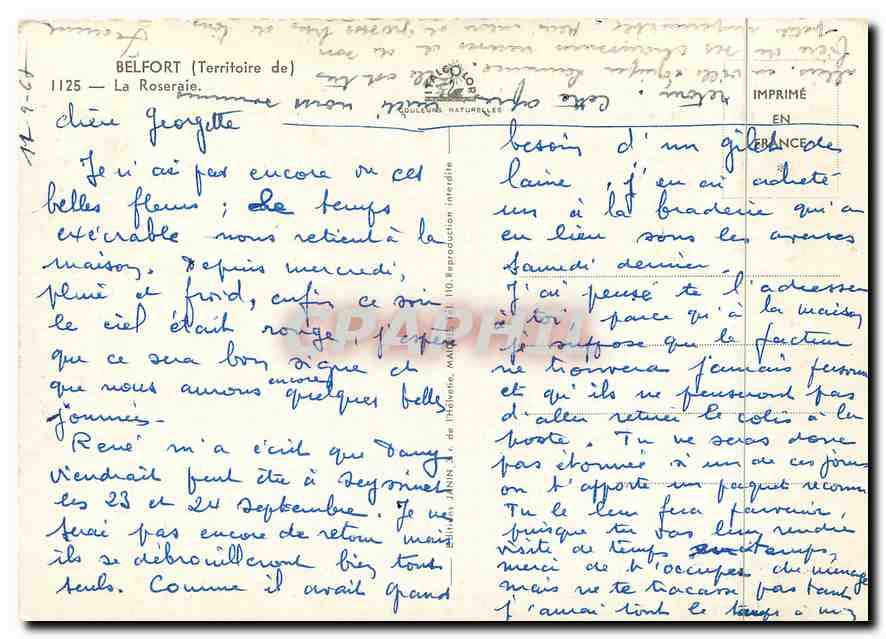 BELFORT (Territoire de)
1125 — La Roseraie.
ITALCOLOR
COULEURS NATURELLES
IMPRIMÉ
EN
FRANCE
Editions JANIN r. de l'Helvétie, MA 110. Reproduction interdite
GRAPHIL
Chère Georgette
Je n'ai pas encore vu ces
belles fleurs ; temps
exécrable nous retient à la
maison. Depuis mercredi,
pluie et froid, enfin ce soir
le ciel était rouge, j'espère
que ce sera bon signe et
que nous aurons encore quelques belles
journées.
René m'a écrit que Dany
viendrait peut être à Seyssinet
les 23 et 24 septembre. Je ne
serai pas encore de retour mais
ils se débrouilleront bien tous
seuls. Comme il avait grand
besoin d'un gilet de
laine, j'en ai acheté
un à la braderie qui a
eu lieu sous les averses
samedi dernier.
J'ai pensé te l'adresser
à toi parce qu'à la maison
je suppose que le facteur
ne trouvera jamais personne
et qu'ils ne penseront pas
d'aller retirer le colis à la
poste. Tu ne seras donc
pas étonnée si un de ces jours
on t'apporte un paquet recomm
Tu le leur fera parvenir,
puisque tu vas leur rendre
visite de temps en temps,
merci de t'occuper du ménage
mais ne te tracasse pas tant
j'aurai tout le temps à mon
retour. Cette après midi nous sommes
allés en ville